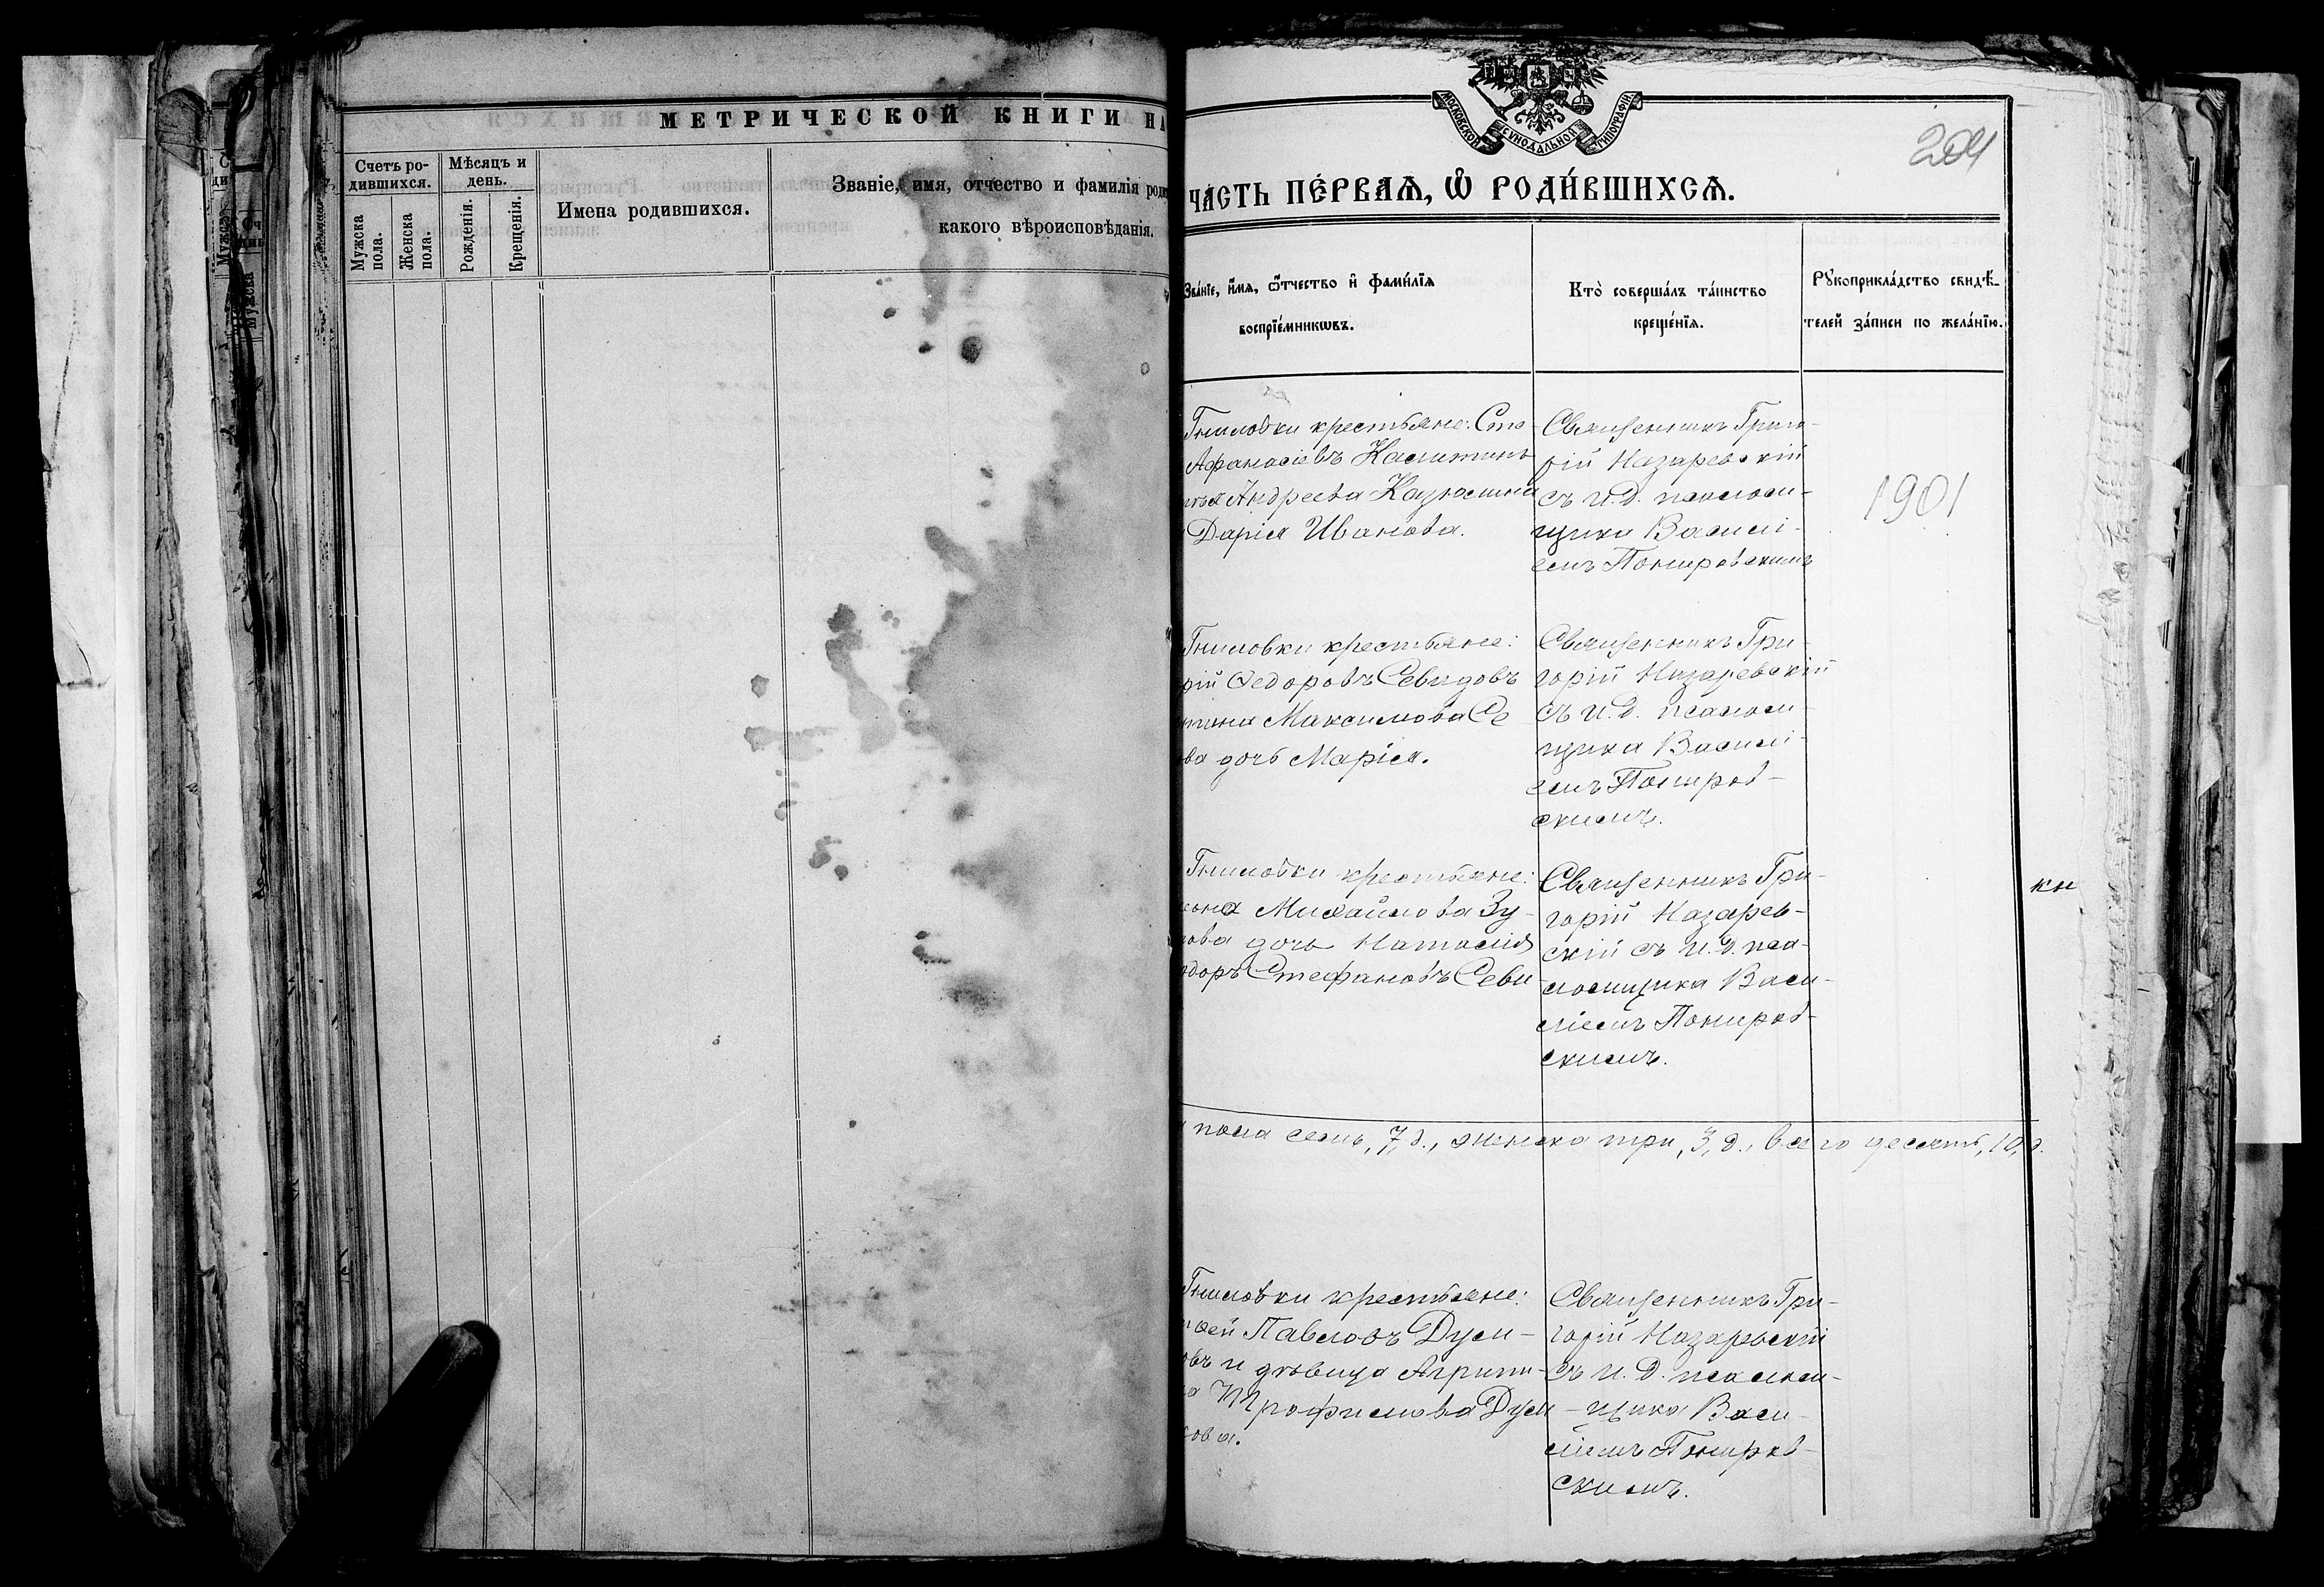 МЕТРИЧЕСКОЙ КНИГИ НА
Счетъ ро-
дившихся.
Мужска
пола.
Женска
пола.
Мѣсяцъ и
день.
Рожденія.
Крещенія.
Имена родившихся.
Званіе, имя, отчество и фамилія роди
какого вѣроисповѣданія.
МОСКОВСКОЙ СѴНОДАЛЬНОЙ ТИПОГРАФІИ
204
ЧАСТЬ ПЕ́РВАѦ, Ѡ҆ РОДИ́ВШИХСѦ.
Зва́нїе, и҆́мѧ, ѻ҆́тчество и҆ фами́лїѧ
воспрїе́мникѡвъ.
Кто̀ соверша́лъ та́инство
креще́нїѧ.
Рꙋкоприкла́дство свидѣ́-
телей за́писи по жела́нїю.
Гниловки крестьяне: Сте
Афанасіевъ Калитинъ
Андреева Казюлина
Дарія Иванова.
Священникъ Григо-
рій Назаревскій
съ и. д. псалом-
щика Василі-
емъ Понировскимъ
1901
Гниловки крестьяне:
рій Ѳедоровъ Севидовъ
Максимова Се
ва дочь Марія.
Священникъ Гри-
горій Назаревскій
съ и. д. псалом-
щика Василі-
емъ Пониров-
скимъ.
Гниловки крестьяне:
Михайлова Зу-
ова дочь Наталія
одоръ Стефановъ Севи-
Священникъ Гри-
горій Назарев-
скій съ и. д. пса-
ломщика Васи-
ліемъ Пониров-
скимъ.
кн
пола семь, 7, д., женска три, 3, д., всего десять, 10, д.
Гниловки крестьяне:
ѳей Павловъ Дуди-
овъ и дѣвица Агрипи-
на Трофимова
ова.
Священникъ Гри-
горій Назаревскій
съ и. д. псалом-
щика Васи-
ліемъ Пониров-
скимъ.